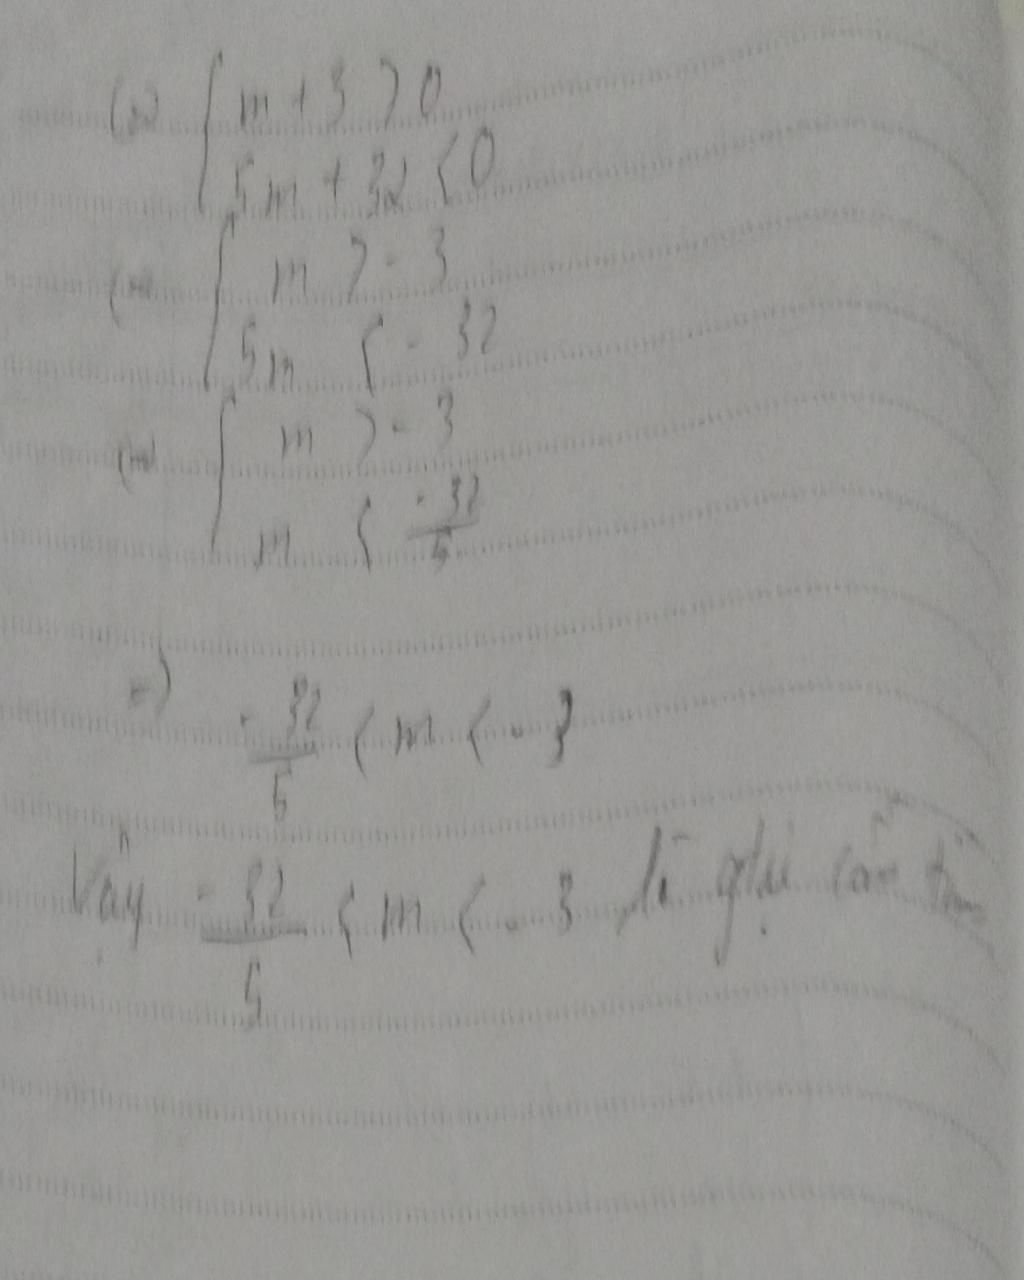 (=) { m + 3 > 0
5m + 32 < 0
(=) { m > - 3
5m < - 32
(=) { m > - 3
m < -32/5
=) -32/5 < m < - 3
Vậy -32/5 < m < - 3 là giá cần tìm